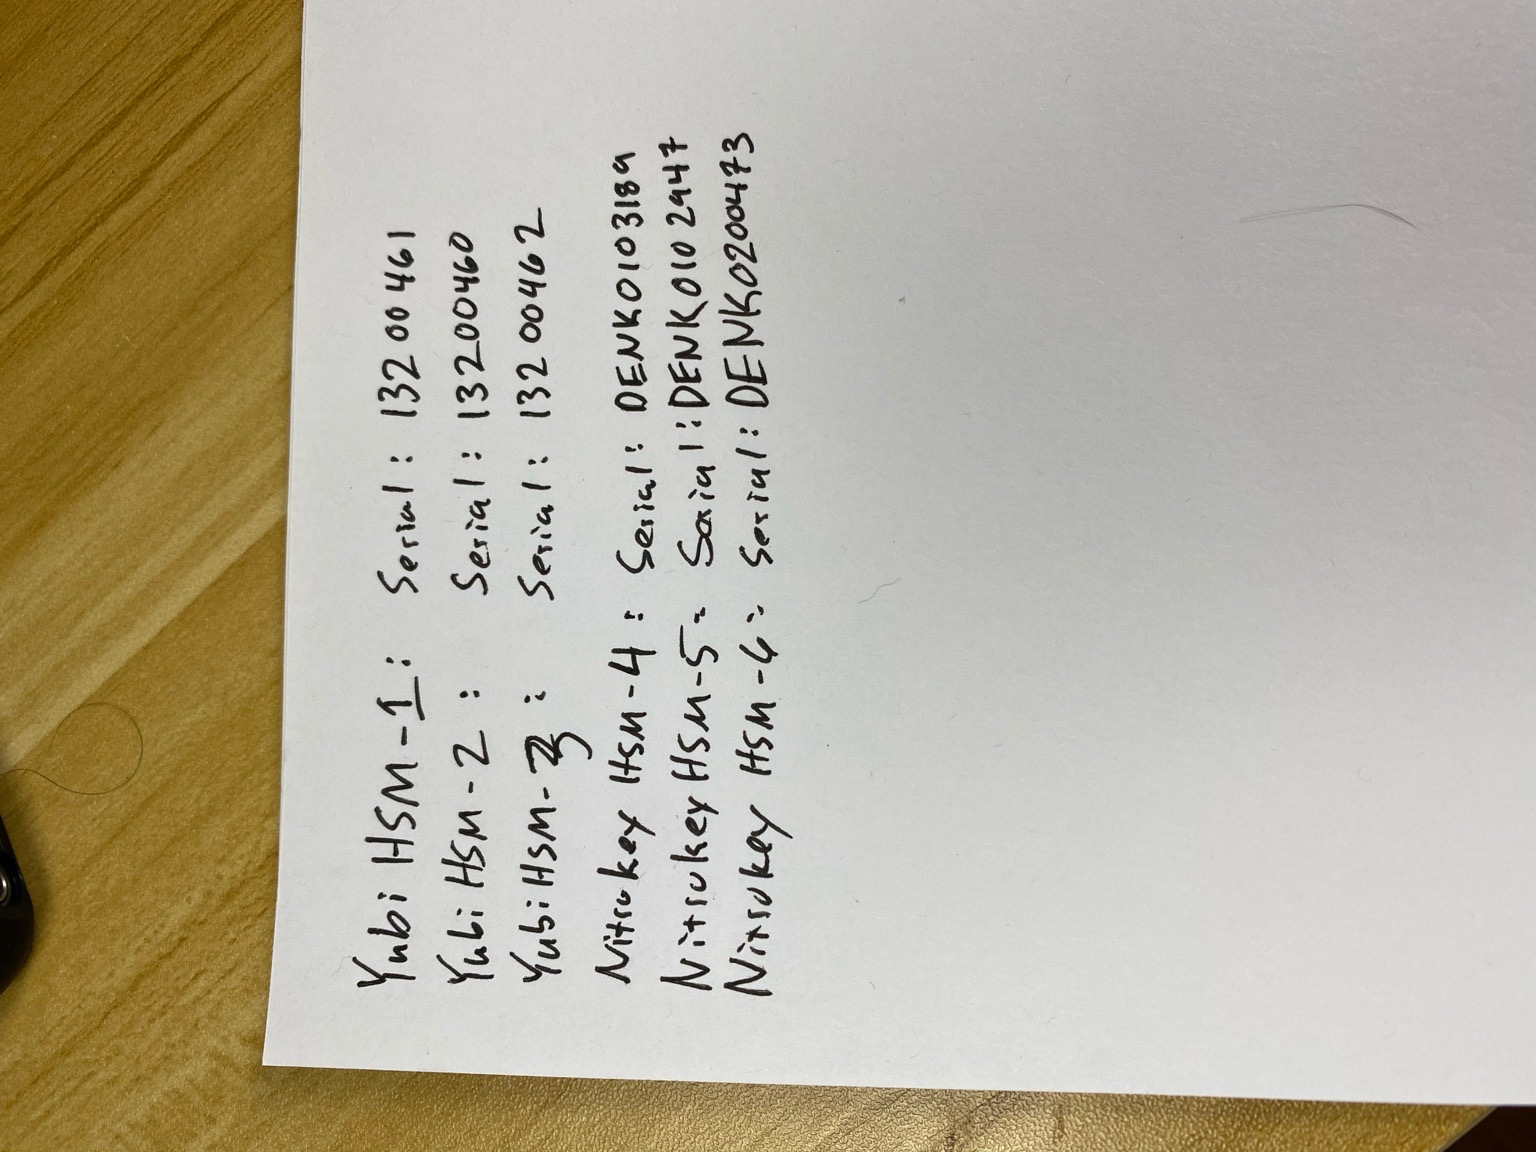 Yubi HSM-1: Serial: 13200461
Yubi HSM-2: Serial: 13200460
YubiHSM-3: Serial: 13200462
Nitrokey HSM-4: Serial: DENK0103189
Nitrokey HSM-5: Serial: DENK0102947
Nitrokey HSM-6: Serial: DENK0200473